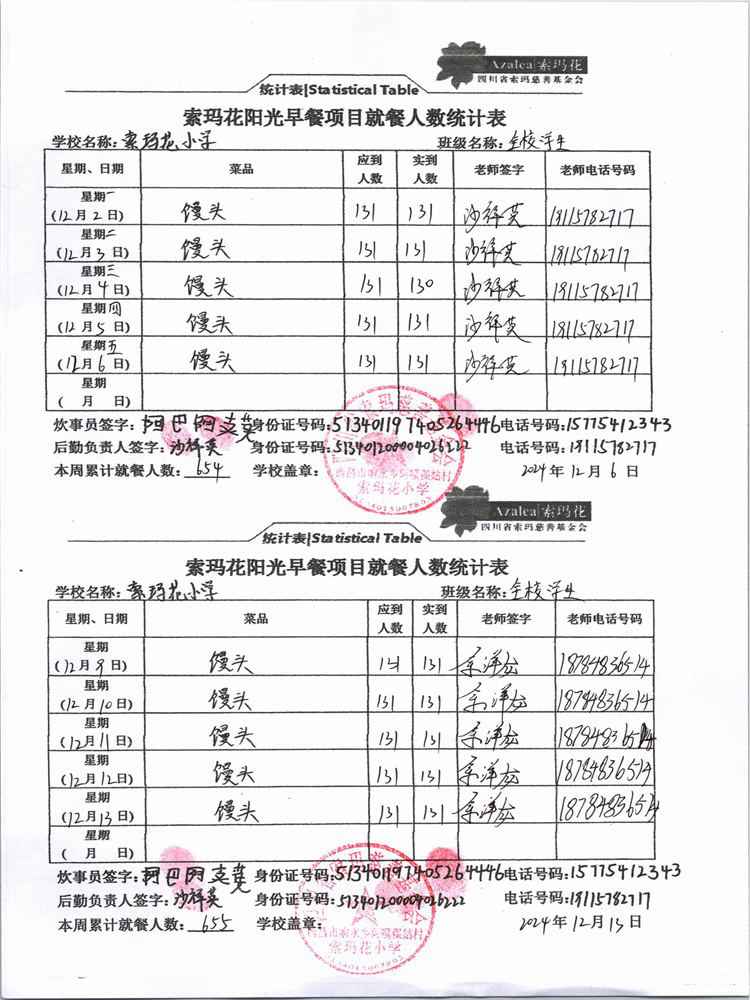 Azalea 索玛花
四川省索玛慈善基金会
统计表|Statistical Table
索玛花阳光早餐项目就餐人数统计表
学校名称：索玛花小学 班级名称：全校学生
星期、日期 菜品 应到人数 实到人数 老师签字 老师电话号码
星期一 (12月2日) 馒头 131 131 沙祥英 18115782717
星期二 (12月3日) 馒头 131 131 沙祥英 18115782717
星期三 (12月4日) 馒头 131 130 沙祥英 18115782717
星期四 (12月5日) 馒头 131 131 沙祥英 18115782717
星期五 (12月6日) 馒头 131 131 沙祥英 18115782717
星期 ( 月 日)
炊事员签字：阿巴阿支 身份证号码：513401197405264446 电话号码：15775412343
后勤负责人签字：沙祥英 身份证号码：513401200004026222 电话号码：18115782717
本周累计就餐人数：654 学校盖章： 2024年12月6日
索玛花小学
Azalea 索玛花
四川省索玛慈善基金会
统计表|Statistical Table
索玛花阳光早餐项目就餐人数统计表
学校名称：索玛花小学 班级名称：全校学生
星期、日期 菜品 应到人数 实到人数 老师签字 老师电话号码
星期 (12月9日) 馒头 131 131 18784836514
星期 (12月10日) 馒头 131 131 18784836514
星期 (12月11日) 馒头 131 131 18784836514
星期 (12月12日) 馒头 131 131 18784836514
星期 (12月13日) 馒头 131 131 18784836514
星期 ( 月 日)
炊事员签字：阿巴阿支 身份证号码：513401197405264446 电话号码：15775412343
后勤负责人签字：沙祥英 身份证号码：513401200004026222 电话号码：18115782717
本周累计就餐人数：655 学校盖章： 2024年12月13日
索玛花小学